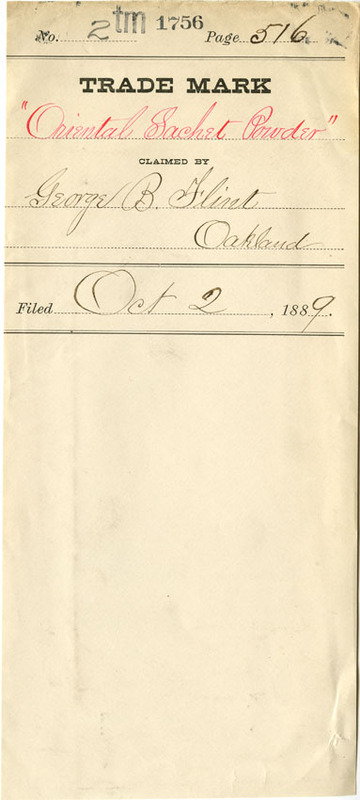 No. 2 tm 1756 Page 516
TRADE MARK
"Oriental Sachet Powder"
CLAIMED BY
George B. Flint
Oakland
Filed Oct 2, 1889.